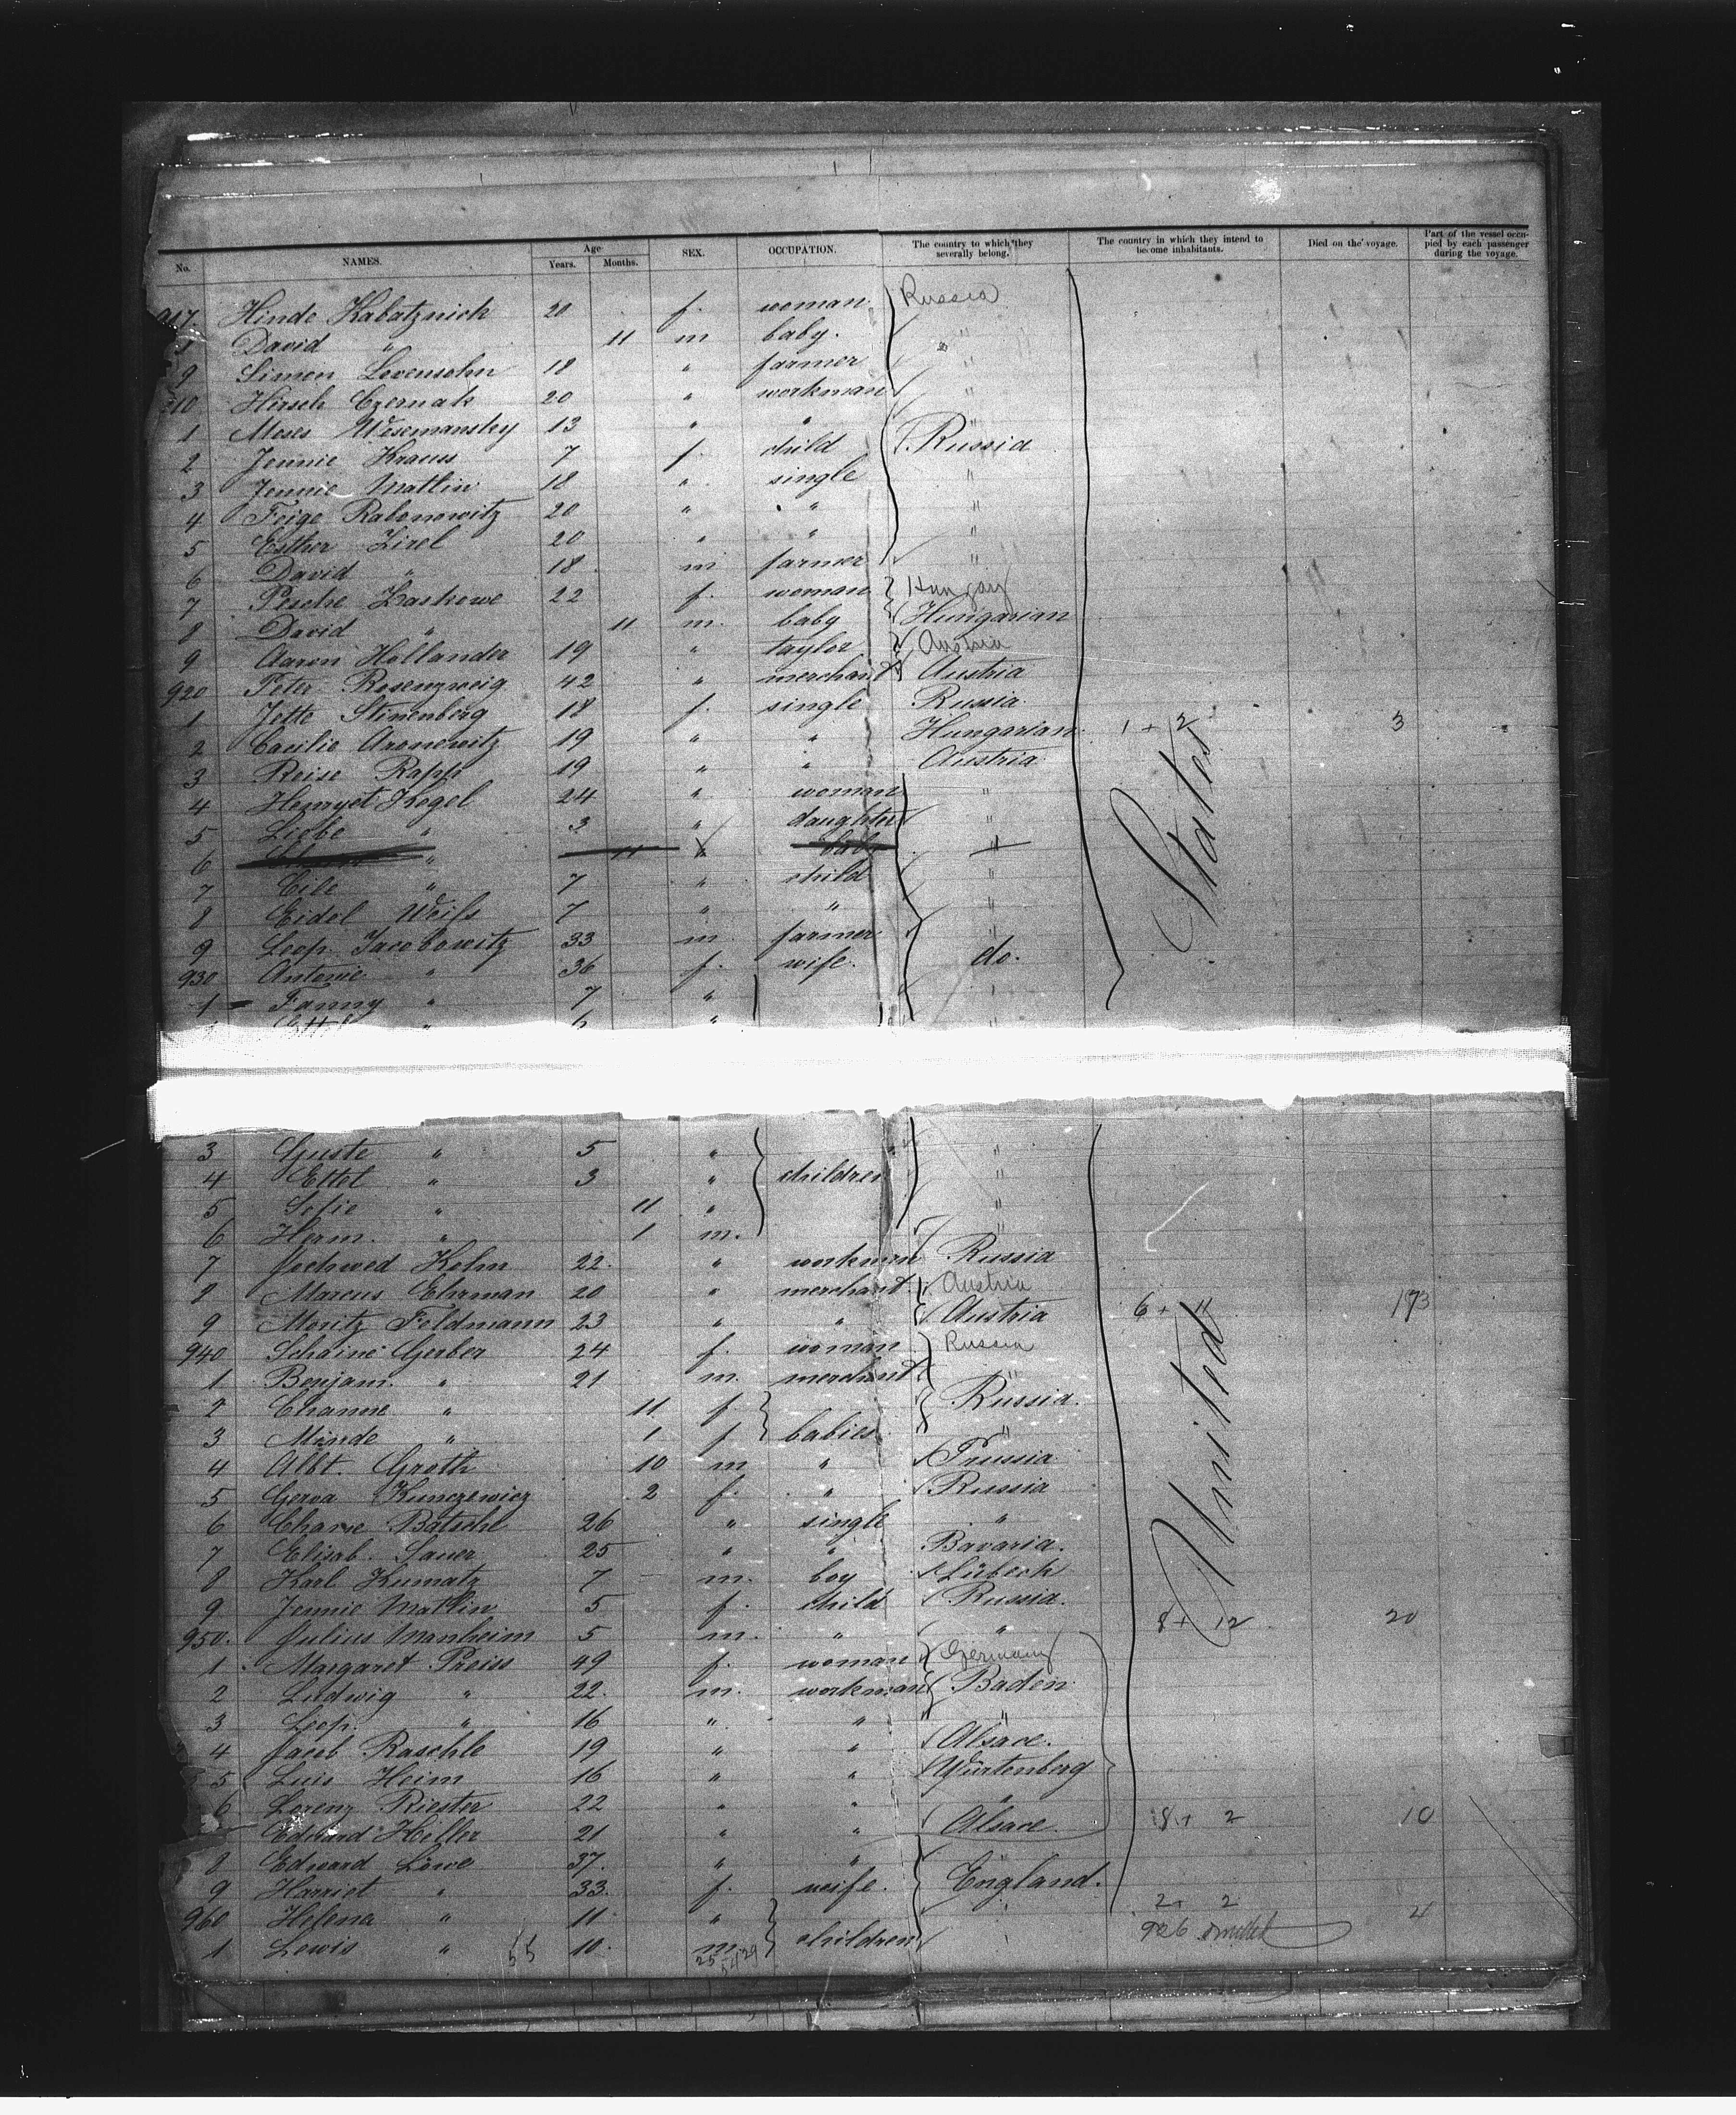 No. NAMES. Age Years. Months. SEX. OCCUPATION. The country to which they severally belong. The country in which they intend to become inhabitants. Died on the voyage. Part of the vessel occupied by each passenger during the voyage.
917 Hinde Kabatznick 20 f. woman Russia
David " 11 m baby. "
9 Simon Levensohn 18 " farmer "
910 Hirsch Czernak 20 " workman "
1 Moses Wesemanskey 13 " " "
2 Jennie Kraus 7 f. child Russia
3 Jennie Matlin 18 " single "
4 Feige Rabonowitz 20 " " "
5 Esther Zirel 20 " " "
6 David " 18 m farmer "
7 Pesche Laskowe 22 f. woman Hungary
8 David " 11 m. baby Hungarian
9 Aaron Hollander 19 " taylor Austria
920 Peter Rosenzweig 42 " merchant Austria
1 Jette Stinenberg 18 f. single Russia.
2 Cacilie Aronowitz 19 " " Hungarian 1 + 2 3
3 Reise Rapp 19 " " Austria
4 Henryet Kogel 24 " woman "
5 Liebe " 3 " daughter "
6 " 11 " baby "
7 Cile " 7 " child "
8 Eidel Weifs 7 " " "
9 Leop. Jacobowitz 33 m. farmer "
930 Antonie " 36 f. wife. do.
1 Fanny " 7 "
" 6 " "
States
3 Guste " 5 " "
4 Ettel " 3 " children "
5 Sofie " 11 " "
6 Herm. " 1 m. "
7 Jochwed Kohn 22. " workman Russia
8 Marcus Ehrman 20 " merchant. Austria
9 Moritz Feldmann 23 " " Austria 6 + 11 173
940 Schaine Gerber 24 f. woman Russia
1 Benjam. " 21 m. merchant "
2 Channe " 11 f Russia.
3 Minde " 1 f babies "
4 Albt. Groth 10 m " Prussia
5 Gerva Kunczewicz 2 f. " Russia
6 Chane Batschl 26 " single "
7 Elisab. Sauer 25 " " Bavaria.
8 Karl Kumatz 7 m. boy Lübeck
9 Jennie Matlin 5 f. child Russia.
950. Julius Manheim 5 m. " " 8 + 12 20
1 Margaret Preiss 49 f. woman Germany
2 Ludwig " 22. m. workman Baden
3 Leop. " 16 " " "
4 Jacob Raschle 19 " " Alsace.
5 Luis Heim 16 " " Würtenberg
6 Lorenz Riester 22 " " "
Edward Hiller 21 " " Alsace 8 + 2 10
8 Edward Löwe 37. " "
9 Harriet " 33. f. wife. England.
960 Helena " 11 " " 2 + 2 4
1 Lewis " 10. m children 926
United
55 25 29
54